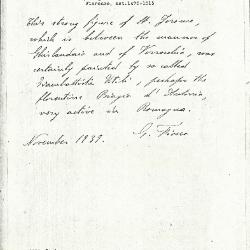 Florence, act.1470-1515
This strong figure of St. Jerome,
which is between the manner of
Ghirlandaio and of Verrocchio, was
certainly painted by so called
Giambattista Utili, perhaps the
florentine Biagio d'Antonio,
very active in Romagna.
G. Fiocco
November 1939.